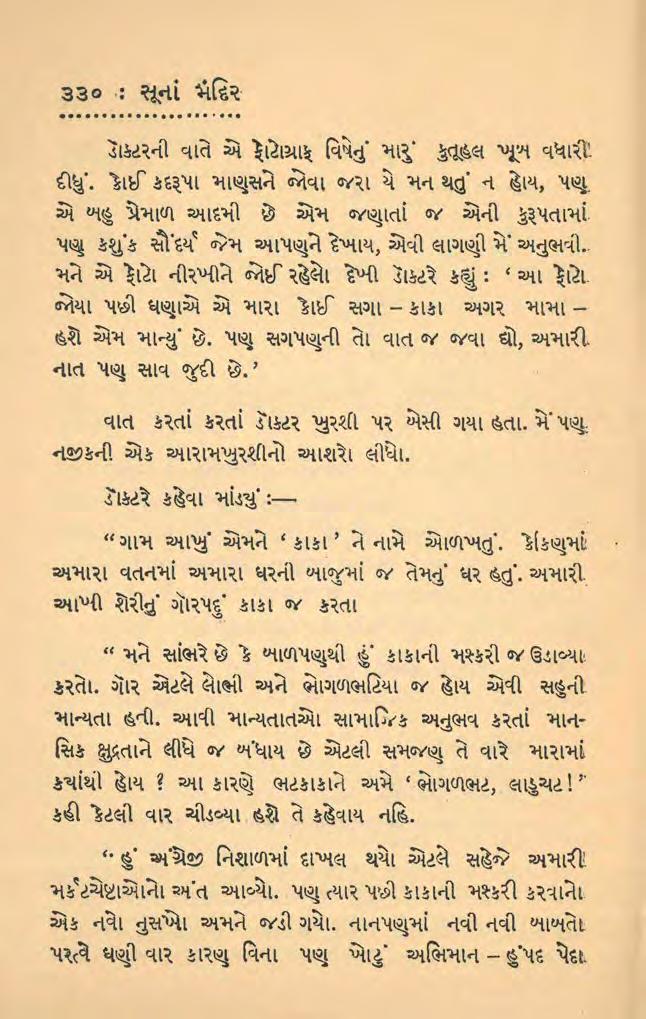 ૩૩૦ : સૂનાં મંદિર
ડૉક્ટરની વાતે એ ફોટોગ્રાફ વિષેનું મારું કુતૂહલ ખૂબ વધારી
દીધું. કોઈ કદરૂપા માણસને જોવા જરા યે મન થતું ન હોય, પણ
એ બહુ પ્રેમાળ આદમી છે એમ જણાતાં જ એની કુરૂપતામાં
પણ કશુંક સૌંદર્ય જેમ આપણને દેખાય, એવી લાગણી મેં અનુભવી.
મને એ ફોટો નીરખીને જોઈ રહેલો દેખી ડૉક્ટરે કહ્યું : ‘ આ ફોટો
જોયા પછી ઘણાએ એ મારા કોઈ સગા – કાકા અગર મામા –
હશે એમ માન્યું છે. પણ સગપણની તો વાત જ જવા દ્યો, અમારી
નાત પણ સાવ જુદી છે.’
વાત કરતાં કરતાં ડૉક્ટર ખુરશી પર બેસી ગયા હતા. મેં પણ
નજીકની એક આરામખુરશીનો આશરો લીધો.
ડૉક્ટરે કહેવા માંડ્યું :—
“ ગામ આખું એમને ‘ કાકા ’ ને નામે ઓળખતું. કોંકણમાં
અમારા વતનમાં અમારા ઘરની બાજુમાં જ તેમનું ઘર હતું. અમારી
આખી શેરીનું ગૉરપદું કાકા જ કરતા
“ મને સાંભરે છે કે બાળપણથી હું કાકાની મશ્કરી જ ઉડાવ્યા
કરતો. ગૉર એટલે લોભી અને ભોગળભટિયા જ હોય એવી સહુની
માન્યતા હતી. આવી માન્યતાતઓ સામાજિક અનુભવ કરતાં માન-
સિક ક્ષુદ્રતાને લીધે જ બંધાય છે એટલી સમજણ તે વારે મારામાં
ક્યાંથી હોય ? આ કારણે ભટકાકાને અમે ‘ ભોગળભટ, લાડુચટ ! ”
કહી કેટલી વાર ચીડવ્યા હશે તે કહેવાય નહિ.
“ હું અંગ્રેજી નિશાળમાં દાખલ થયો એટલે સહેજે અમારી
મર્કટચેષ્ટાઓનો અંત આવ્યો. પણ ત્યાર પછી કાકાની મશ્કરી કરવાનો
એક નવો નુસખો અમને જડી ગયો. નાનપણમાં નવી નવી બાબતો
પરત્વે ઘણી વાર કારણ વિના પણ ખોટું અભિમાન – હુંપદ પેદા